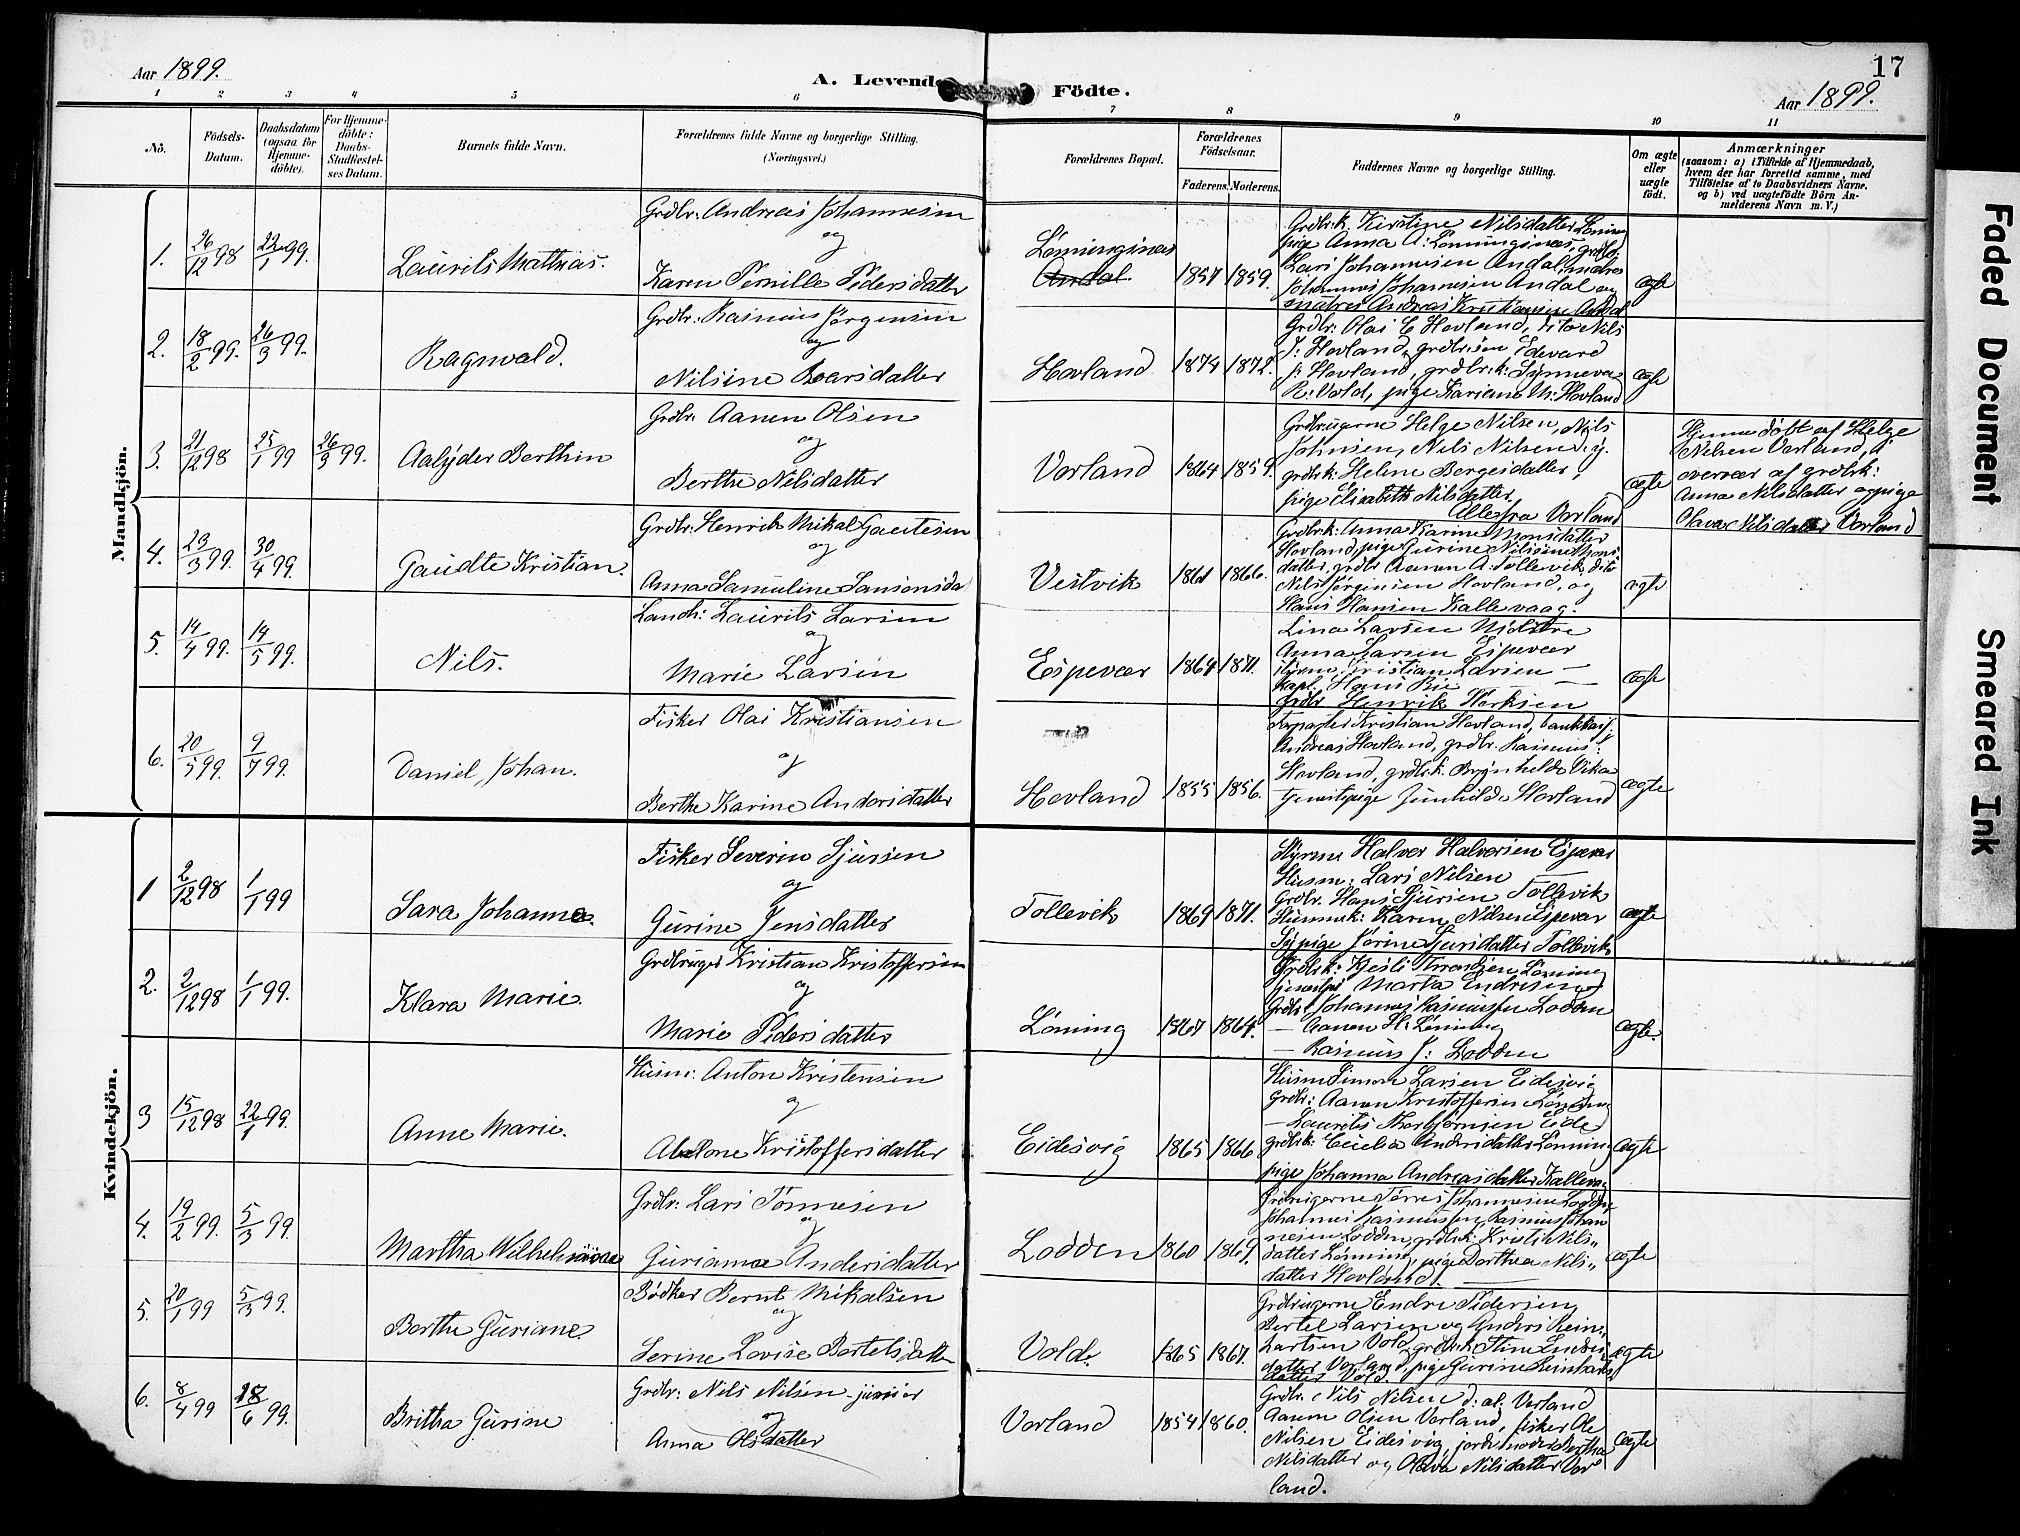 Aar 1899.
A. Levende
Födte.
17
Aar 1899.
1 2 3 4 5 6 7 8 9 10 11
No.
Födsels-Datum.
Daabsdatum (ogsaa for Hjemme-döbte).
For Hjemme-döbte: Daabs-Stadfæstel-ses Datum.
Barnets fulde Navn.
Forældrenes fulde Navne og borgerlige Stilling.
(Næringsvei.)
Forældrenes Bopæl.
Forældrenes Födselsaar.
Faderens. Moderens.
Faddernes Navne og borgerlige Stilling.
Om ægte eller uægte födt.
Anmærkninger
(saasom: a) i Tilfælde af Hjemmedaab, hvem der har forrettet samme, med Tilföielse af to Daabsvidners Navne, og b) ved uægtefödte Börn An-melderens Navn m. V.)
Mandkjön.
1. 26/12 98 22/1 99. Laurits Mathias.
Grdbr. Andreas Johannesen
og
Karen Pernille Pedersdatter
Lönningsnæs
Andal
1857 1859.
Grdbrk. Kirstine Nilsdatter Löning
pige Anna A. Lönningsnæs, grdbr.
Lars Johannesen Andal, matros
Johannes Johannesen Andal og
matros Andreas Kristiansen Andal
ægte
2. 18/2 99. 26/3 99. Ragnvald.
Grdbr. Rasmus Jørgensen
og
Nilsine Larsdatter
Hovland 1874 1872.
Grdbr. Olai E. Hovland, dito Nils
J. Hovland, grdbrsøn Edevard
J. Hovland, grdbrk. Synneva
R. Vold, pige Kariane N. Hovland
ægte
3. 21/12 98 25/1 99 26/3 99. Aalyder Berthin
Grdbr. Aanen Olsen
og
Berthe Nilsdatter
Vorland 1864 1859.
Grdbrugerne Helge Nilsen, Nils
Johnsen, Nils Nilsen d. y.
grdbrk. Helene Børgesdatter,
pige Elisabeth Nilsdatter
Alle fra Vorland
ægte
Hjemmedöbt af Helge
Nilsen Vorland,
overvær af grdbrk.
Anna Nilsdatter og pige
Olava Nilsdatter Vorland
4. 23/3 99. 30/4 99. Gaudte Kristian.
Grdbr. Henrik Mikal Gautesen
og
Anna Samuline Samsonsda
Vestvik 1861 1866.
Grdbrk. Anna Karine Monsdatter
Hovland, pige Gurine Nilsine Mons
datter, grdbr. Aanen A. Tollevik, dito
Nils Jørgensen Hovland, og
Hans Hansen Kallevaag.
ægte
5. 14/4 99. 14/5 99. Nils.
Landh. Laurits Larsen
og
Marie Larsen
Espevær 1864 1871.
Lina Larsen Mølstre
Anna Larsen Espevær
styrm. Kristian Larsen —
Kapt. Hans Bie —
grdbr. Henrik
ægte
6. 20/5 99. 9/7 99. Daniel Johan.
Fisker Olai Kristiansen
og
Berthe Karine Andersdatter
Hovland 1855 1856.
Kristian Hovland,
Andreas Hovland, grdbr. Rasmus
Hovland, grdbrk. Brynhilde Vika
tjenestepige Gunhilda Hovland
ægte
Kvindekjön.
1 2/12 98 1/1 99 Sara Johanna.
Fisker Severin Sjursen
og
Gurine Jensdatter
Tollevik 1869 1871.
Styrm. Halvor Halvorsen Espevær
Husm. Lars Nilsen —
Grdbr. Hans Sjursen Tollevik
Husmk. Karen Nilsen Espevær
Sypige Jørine Sjursdatter Tollevik
ægte
2. 2/12 98 1/1 99. Klara Marie.
Grdbruger Kristian Kristoffersen
og
Marie Pedersdatter
Löning 1867 1864.
Grdbrk. Kjesti Löning
tjenestpi. Marta Endresen
Grdbr. Johannes Rasmussen Lodden
— Aanen H. Löning
— Rasmus J. Lodden
ægte.
3 15/12 98 22/1 99. Anne Marie.
Husm. Anton Kristensen
og
Kristoffersdatter
Eidesvig 1865 1866
Husm. Simon Larsen Eidesvig
Grdbr. Aanen Kristoffersen Lönning
— Laurits Thorbjörnsen Eide
grdbrk. Cecilia Andersdatter Lönning
pige Johanna Andreasdatter Kalleva.
ægte
4. 19/2 99. 5/3 99. Martha Wilhelmine
Grdbr. Lars Tönnesen
og
Guriane Andersdatter
Lodden 1860 1869.
Grdbrugerne Tørres Johannesen Lodden,
Johannes Rasmussen, Rasmus Johan
nesen Lodden, grdbrk. Kristi Nils-
datter Lönning, pige Dorthea Nils-
datter Hovland.
ægte
5. 20/1 99 5/3 99. Berthe Guriane
Bödker Bernt Mikalsen
og
Serine Lovise Bertelsdatter
Vold. 1865 1867.
Grdbrugerne Endre Pedersen,
Bertel Larsen og Anders Rein-
hartsen Vold, grdbrk. Stine
datter Vorland, pige Gurine Reinharts
datter Vold.
ægte
6. 8/4 99 18/6 99. Britha Gurine
Grdbr. Nils Nilsen junior
og
Anna Olsdatter
Vorland 1854 1860.
Grdbr. Nils Nilsen d. æl. Vorland
Aanen Olsen Vorland, fisker Ole
Nilsen Eidesvig, jordmoder Bertha
Nilsdatter og Olava Nilsdatter Vor
land.
ægte
Faded Document
Smeared Ink